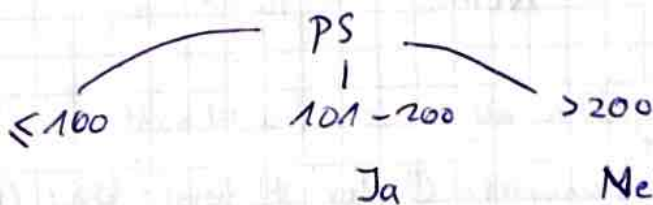 PS
≤100 101-200 >200
Ja Ne